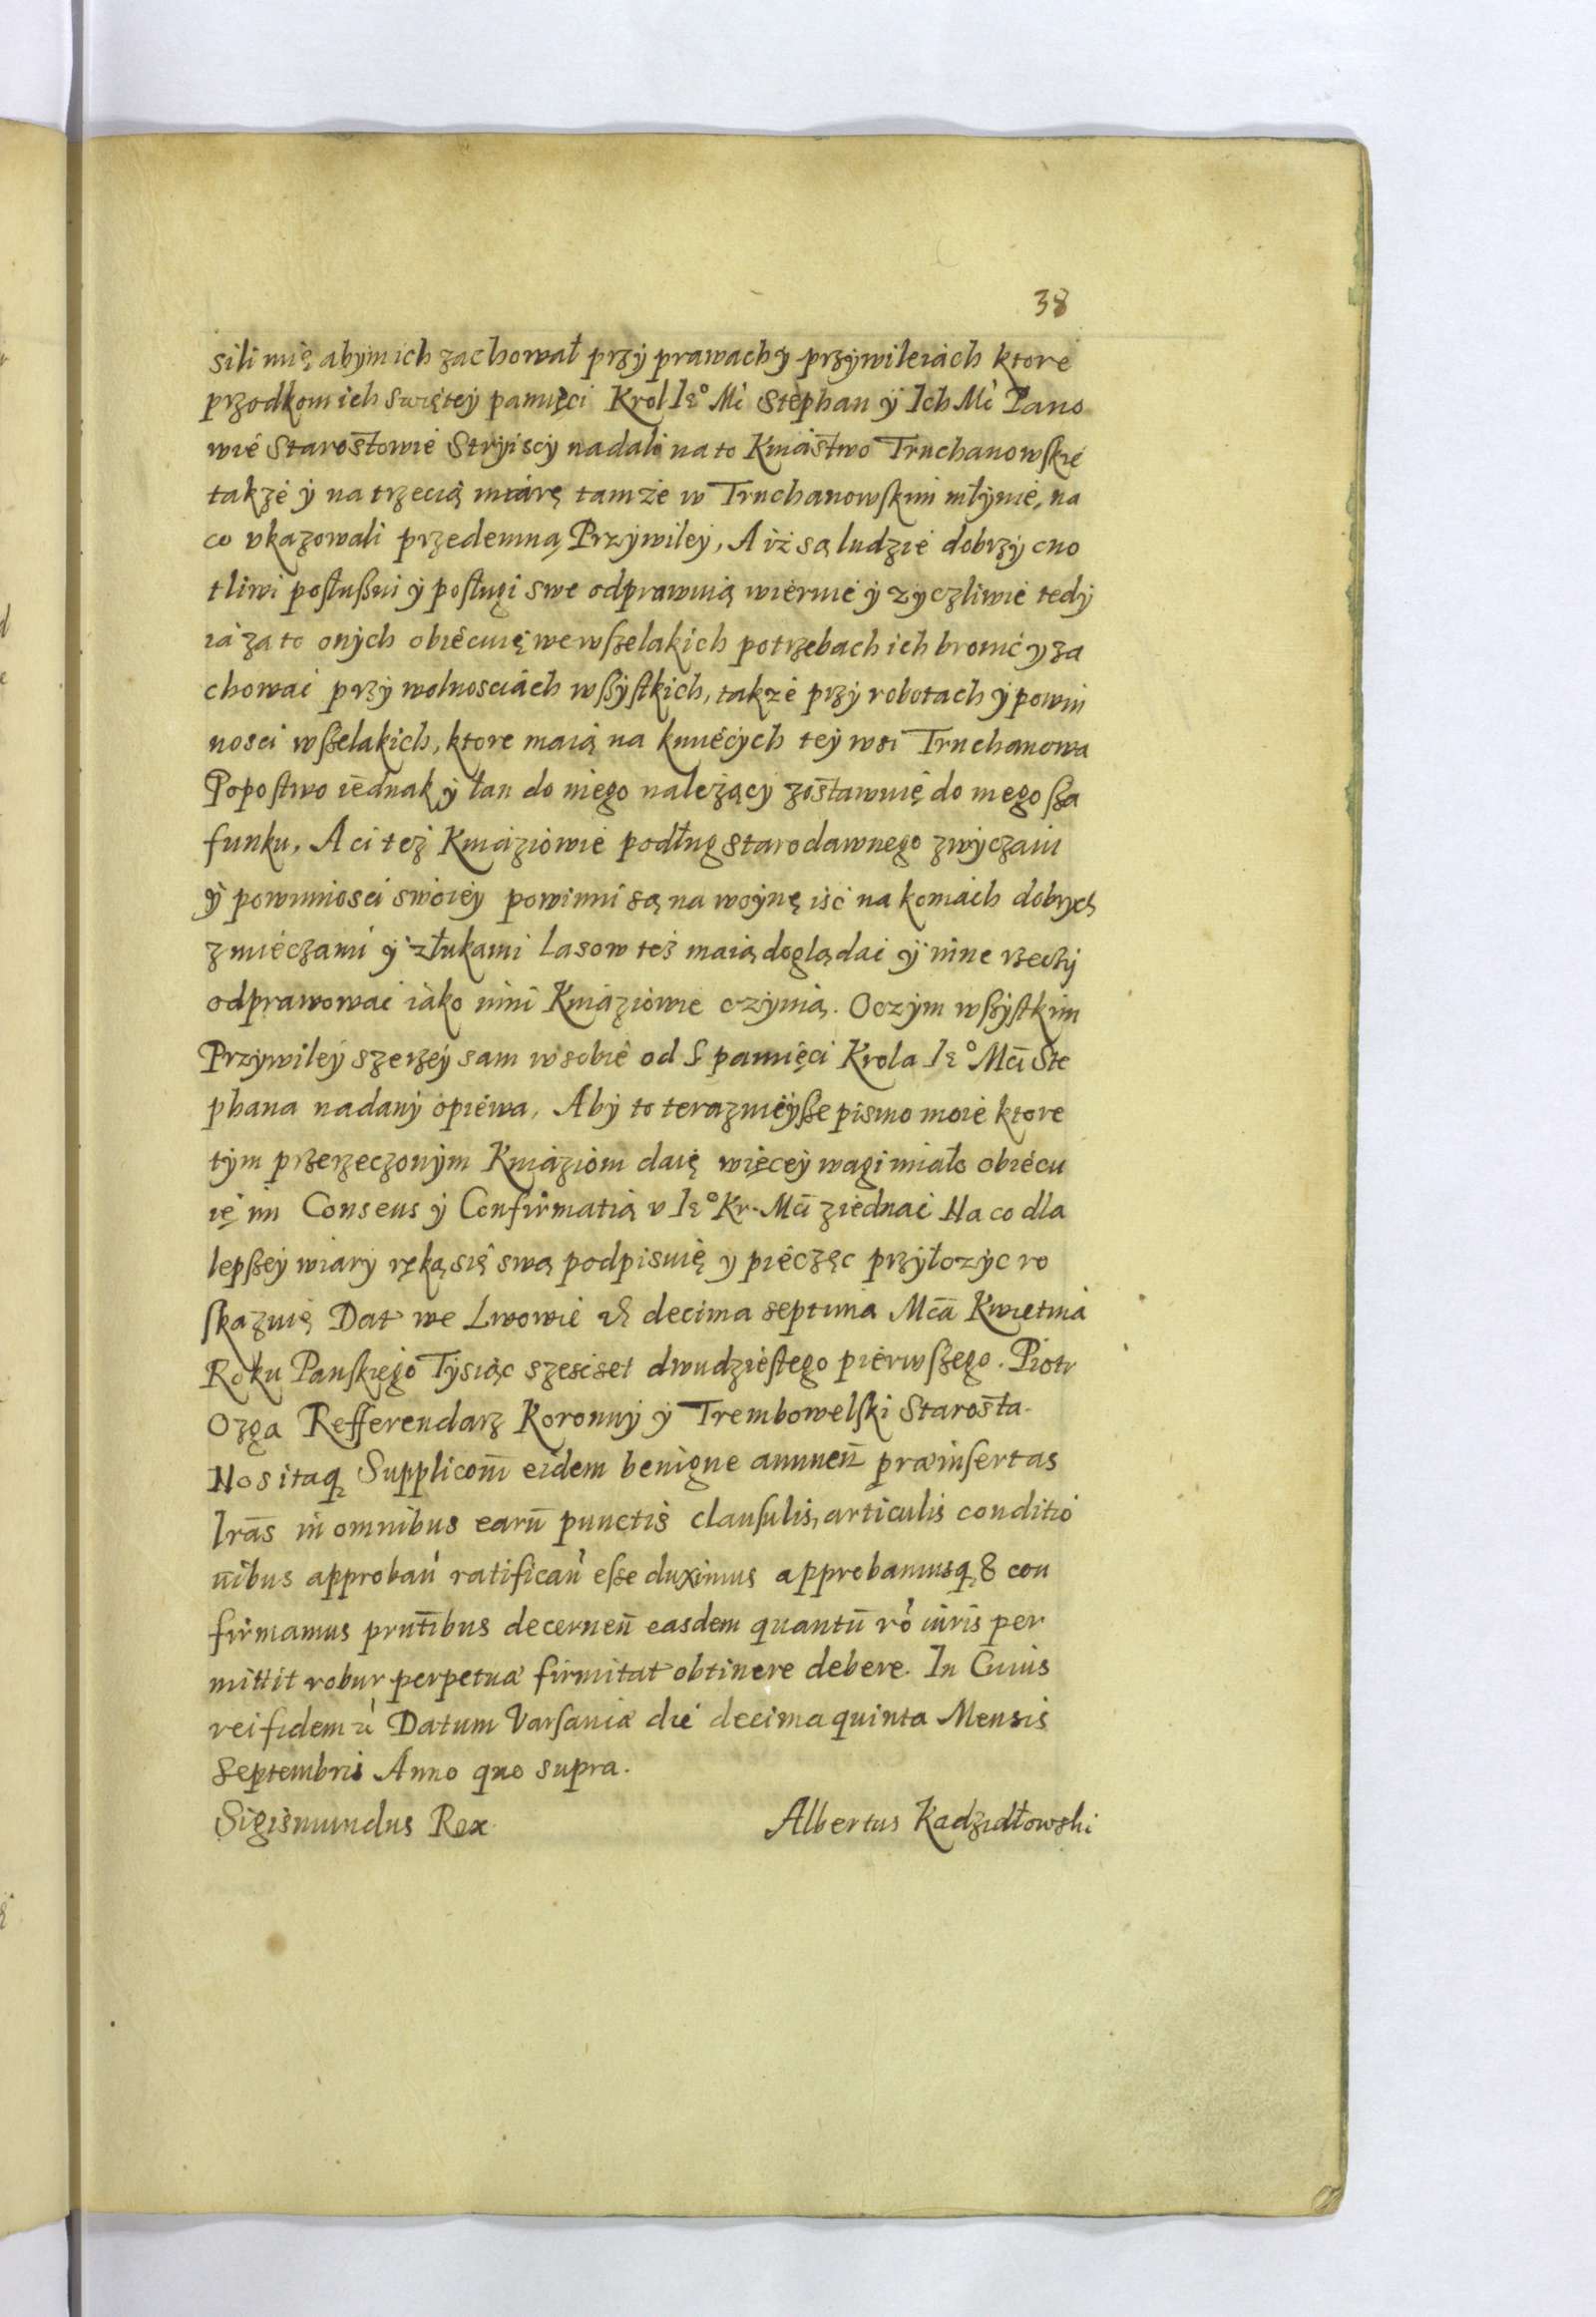 38
sili mię abym ich zachował przÿ prawach ÿ przÿwileiach ktore
przodkom ich swiętey pamięci Krol Ieº Mć Stephan ÿ Ich Mć Pano
wie Starostowie Stryiscy nadali na to Kniastwo Truchanowskie
także ÿ na trzecią miarę tamże w Truchanowskim młynie, na
co vkazowali przedemną Przÿwiley, A iż są ludzie dobrzÿ cno
tliwi posłuszni ÿ posługi swe odprawuią wiernie ÿ zyczliwie tedÿ
ia za to onych obiecuię we wszelakich potrzebach ich bronić y za
chowai przÿ wolnosciach wszÿstkich, takze przÿ robotach ÿ powin
nosci wszelakich, ktore maią na kmiecych teÿ wsi Truchanowa
Popostwo iednak ÿ łan do niego należący zostawuię do mego sza
funku, A ci też Kniaziowie podług starodawnego zwyczaiu
ÿ powinnosci swoiey powinni są na woynę iść na koniach dobrych
z mieczami ÿ z łukami Lasow też maią doglądai ÿ inne rzeczÿ
odprawowai iako inni Kniaziowie czynią. O czym wszÿstkim
Przÿwiley szerzey sam w sobie od S pamięci Krola Ieº Mci Ste
phana nadany opiewa, Aby to teraznieysze pismo moie ktore
tym przerzeczonym Kniaziom daię więcey wagi miało obiecu
ię im Consens ÿ Confirmatią v Ieº Kr. Mci ziednai Na co dla
lepszey wiary ręką się swą podpisuię y pieczęc przyłozyc ro
skazuię Dat we Lwowie decima septima Mca Kwietnia
Roku Panskiego Tysiąc szesciset dwudziestego pierwszego. Piotr
Ozga Refferendarz Koronny ÿ Trembowelski Starosta.
Nos itaq Suppliconi eidem benigne annuen præinsertas
lras in omnibus earu punctis clausulis, articulis conditio
nibus approban ratifican esse duximus approbamusq & con
firmamus prntibus decernen easdem quantu ro iuris per
mittit robur perpetuæ firmitat obtinere debere. In Cuius
rei fidem Datum Varsaviæ die decima quinta Mensis
Septembris Anno quo supra.
Sigismundus Rex Albertus Kadzidłowski